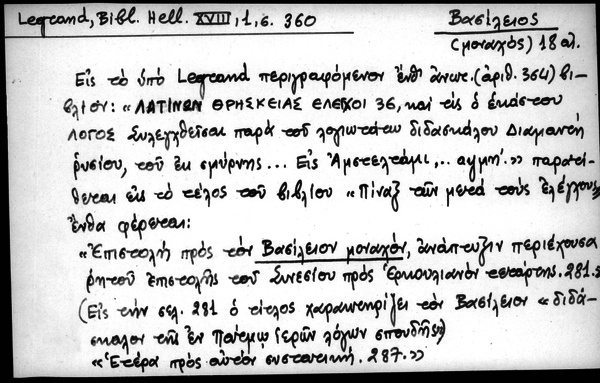 Legrand, Bibl. Hell. XVIII, 1, σ. 360
Βασίλειος
(μοναχός) 18 αἰ.
Εἰς τὸ ὑπὸ Legrand περιγραφόμενον ἔνθ' ἀνωτ. (ἀριθ. 364) βι-
βλίον: «ΛΑΤΙΝΩΝ ΘΡΗΣΚΕΙΑΣ ΕΛΕΓΧΟΙ 36, καὶ εἰς ὁ ἑκάστου
ΛΟΓΟΣ Συλεγχθεῖσαι παρὰ τοῦ λογιωτάτου διδασκάλου Διαμαντῆ
ῥυσίου, τοῦ ἐκ σμύρνης... Εἰς Ἀμστελτάμι,.. αψμη'.» παρατί-
θεται εἰς τὸ τέλος τοῦ βιβλίου «Πίναξ τῶν μετὰ τοὺς ἐλέγχους»
ἔνθα φέρεται:
«Ἐπιστολὴ πρὸς τὸν Βασίλειον μοναχόν, ἀνάπτυξιν περιέχουσα
ῥητοῦ ἐπιστολῆς τοῦ Συνεσίου πρὸς Ἑρκουλιανὸν τετάρτης. 281.»
(Εἰς τὴν σελ. 281 ὁ τίτλος χαρακτηρίζει τὸν Βασίλειον «διδά-
σκαλον τῆς ἐν Πάτμῳ ἱερῶν λόγων σπουδῆς»)
«Ἑτέρα πρὸς αὐτὸν συστατική. 287.»